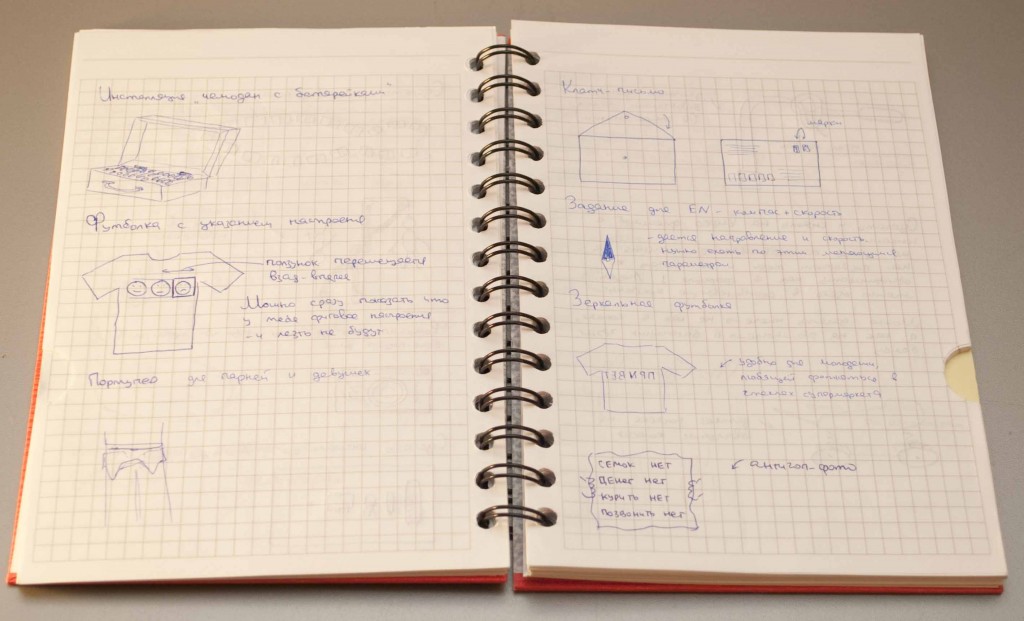 Инсталляция "чемодан с батарейками"
Футболка с указанием настроения
ползунок перемещается
взад-вперед
Можно сразу показать что
у тебя фиговое настроение
- и лезть не будут
Портупея для парней и девушек
Клатч-письмо
марки
Задание для EN - компас + скорость
- дается направление и скорость.
нужно ехать по этим
параметрам
Зеркальная футболка
удобно для молодежи,
любящей фоткаться в
стеклах супермаркета
СЕМОК НЕТ
ДЕНЕГ НЕТ
КУРИТЬ НЕТ
ПОЗВОНИТЬ НЕТ
антигоп-фото